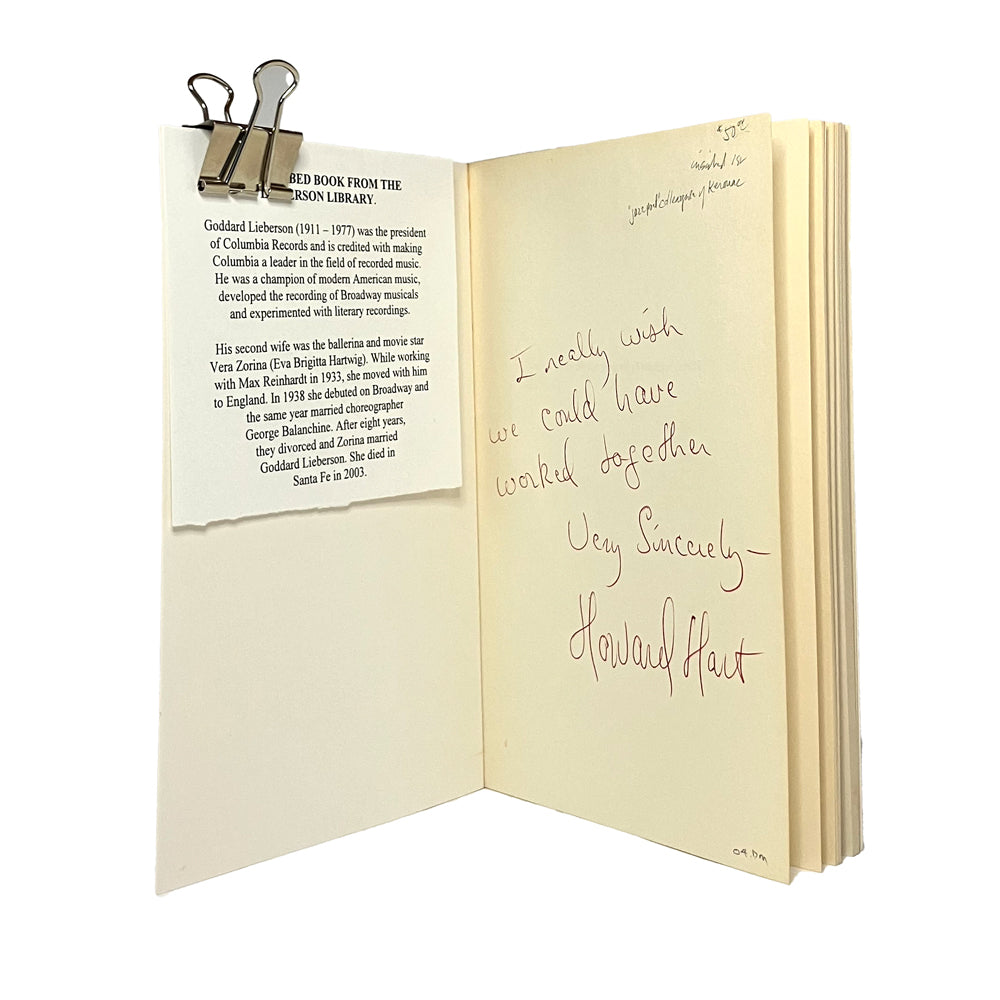 BED BOOK FROM THE
ERSON LIBRARY.
Goddard Lieberson (1911 – 1977) was the president
of Columbia Records and is credited with making
Columbia a leader in the field of recorded music.
He was a champion of modern American music,
developed the recording of Broadway musicals
and experimented with literary recordings.
His second wife was the ballerina and movie star
Vera Zorina (Eva Brigitta Hartwig). While working
with Max Reinhardt in 1933, she moved with him
to England. In 1938 she debuted on Broadway and
the same year married choreographer
George Balanchine. After eight years,
they divorced and Zorina married
Goddard Lieberson. She died in
Santa Fe in 2003.
$50.00
inscribed 1st
"jazz poet" colleague of Kerouac
I really wish
we could have
worked together
Very Sincerely—
Howard Hart
04.DM